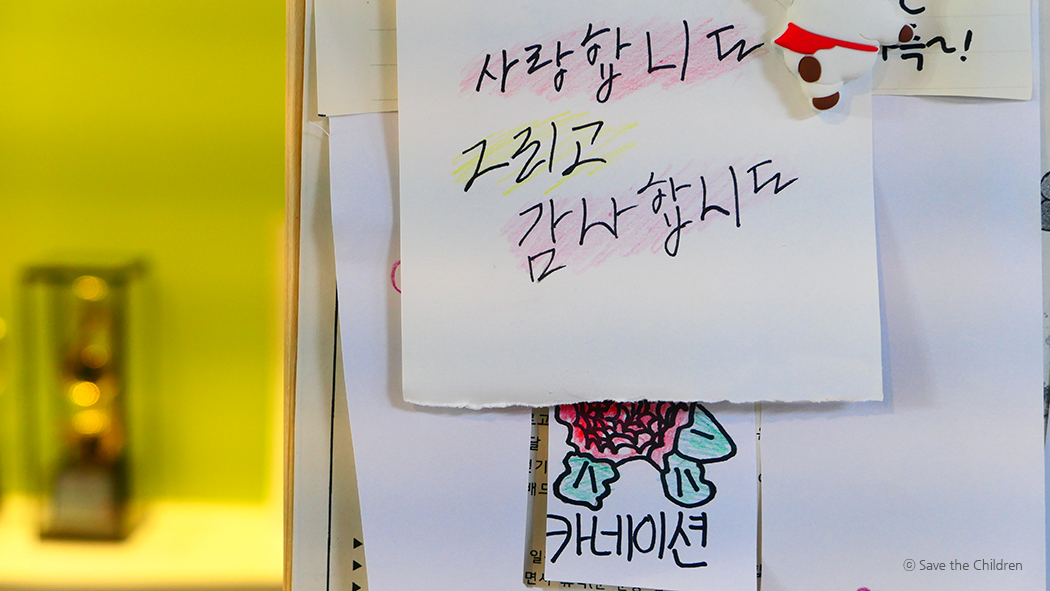 사랑합니다
그리고
감사합니다
카네이션
ⓒ Save the Children